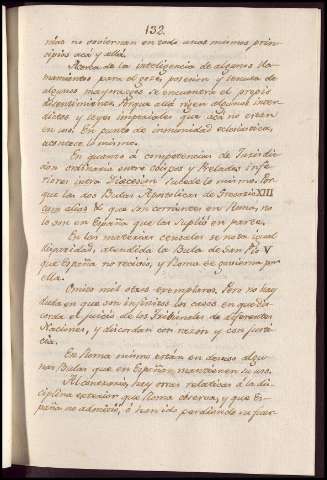 132.
nias no gobiernan en todo unos mismos prin-
cipios acá y allá.
Acerca de la inteligencia de algunos lla-
mamientos para el goze, posesion y tenuta de
algunos mayorazgos se encuentra el propio
disentimiento. Porque allá rigen algunos inter-
dictos y leyes imperiales que acá no están
en uso. En punto de inmunidad eclesiástica,
acontece lo mismo.
En quanto á competencias de Jurisdic-
cion ordinaria entre obispos y Prelados infe-
riores intra Diocesim sucede lo mismo. Por-
que las dos Bulas Apostolicas de Gregorio XIII
tam alias &c que son corrientes en Roma, no
lo son en España que las suplió en parte.
En las materias censales se nota igual
disparidad, atendida la Bula de San Pio V
que España no recivió, y Roma se govierna por
ella.
Omito mil otros exemplares. Pero no hay
duda en que son infinitos los casos en que dis-
corda el juicio de los Tribunales de diferentes
Naciones, y discordan con razon y con justi-
cia.
En Roma mismo están en desuso algu-
nas Bulas que en España mantienen su uso.
Al contrario, hay otras relativas á la dis-
ciplina exterior que Roma observa, y que Es-
paña no admitió, ó han ido perdiendo su fuer-